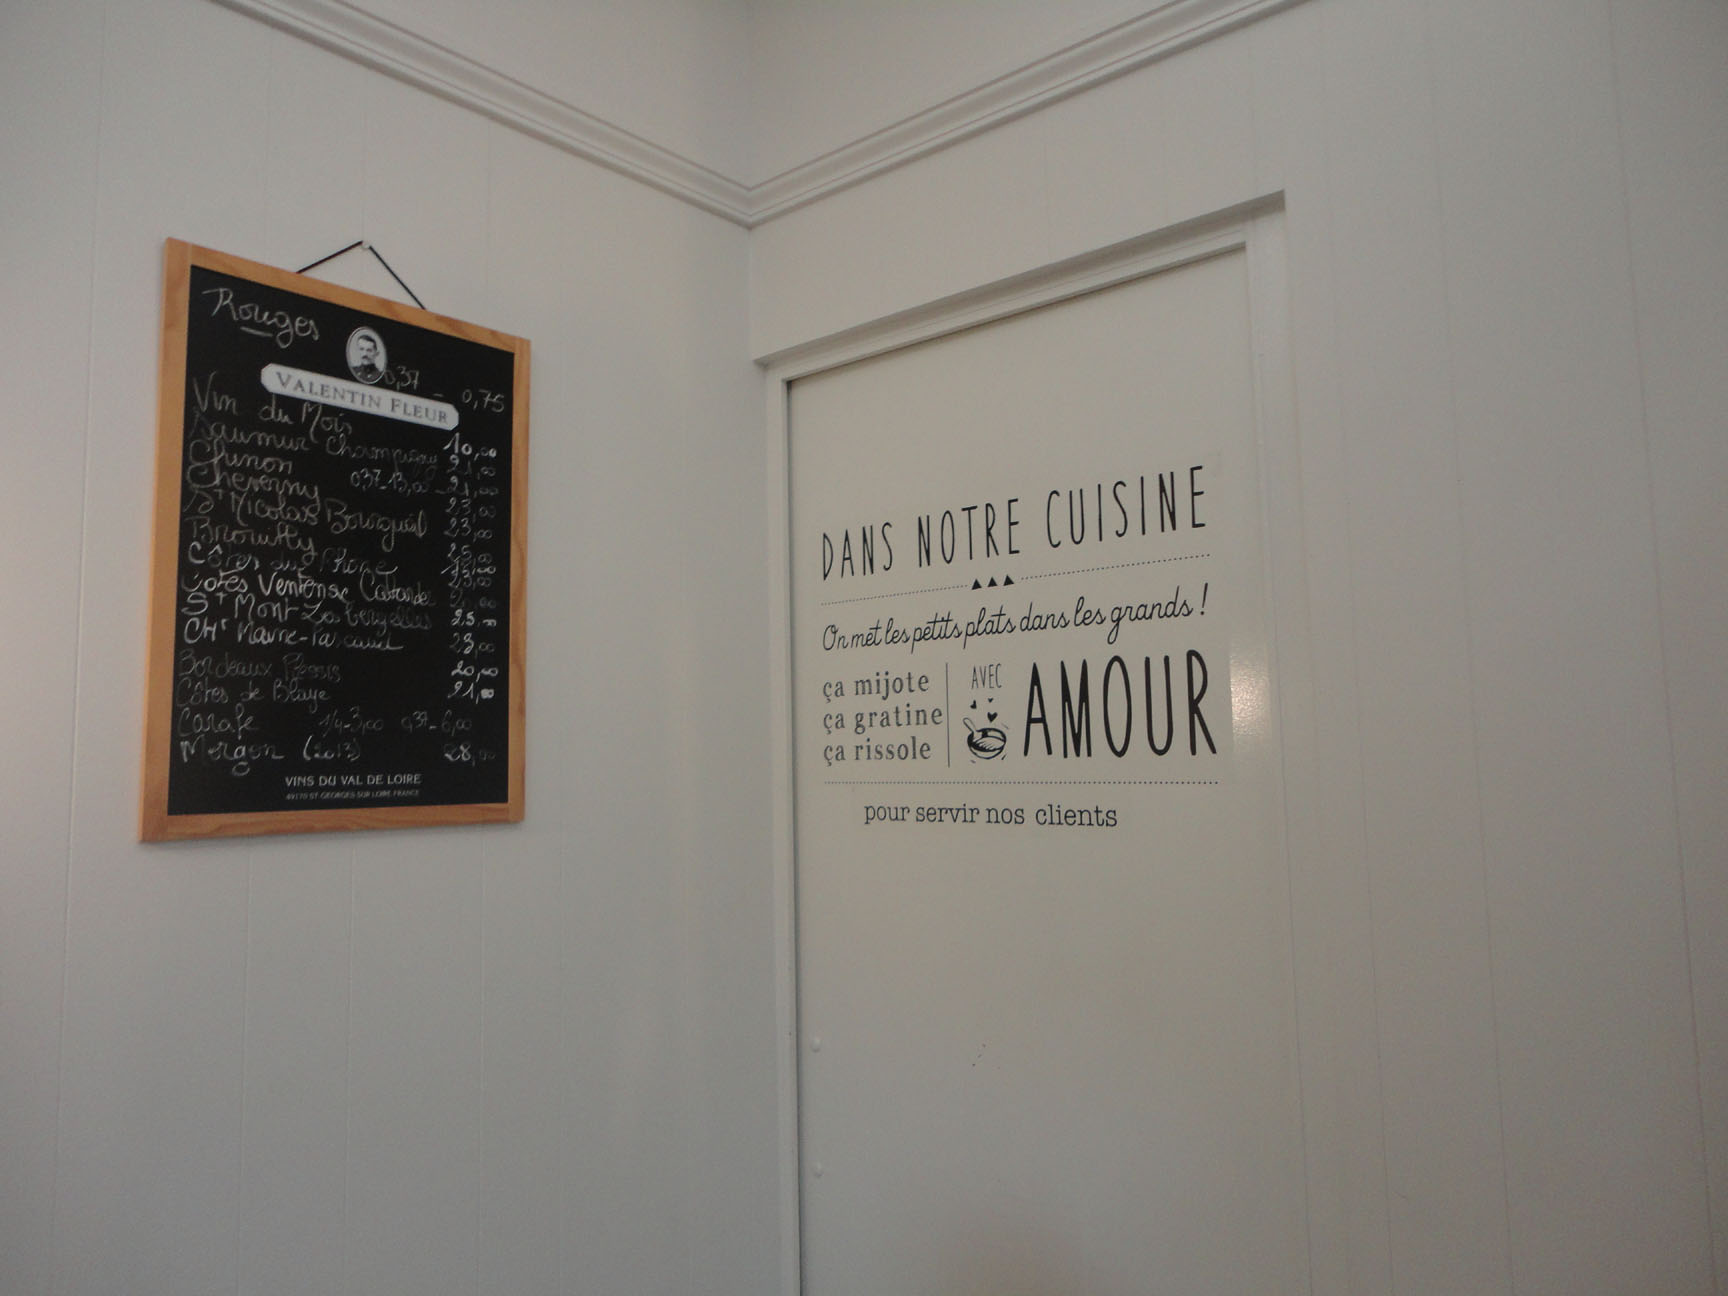 Rouges
0,37 - 0,75
VALENTIN FLEUR
Vin du Mois 10,00
Saumur Champigny 21,00
Chinon 0,37-13,00 - 21,00
Cheverny 23,00
St Nicolas Bourgueil 23,00
Brouilly 25,00
Côtes du Rhone
Côtes Ventenac
St Mont 25,00
CHt 23,00
Bordeaux 20,00
Côtes de Blaye 21,00
Carafe 1/4-3,00 0,37-6,00
Morgon (2013) 28,00
VINS DU VAL DE LOIRE
49170 ST-GEORGES-SUR-LOIRE-FRANCE
DANS NOTRE CUISINE
On met les petits plats dans les grands !
ça mijote
ça gratine
ça rissole
AVEC
AMOUR
pour servir nos clients